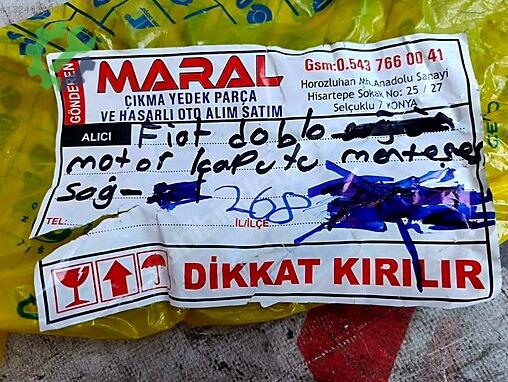 GÖNDEREN
MARAL
ÇIKMA YEDEK PARÇA
VE HASARLI OTO ALIM SATIM
Gsm:0.543 766 00 41
Horozluhan Mh. Anadolu Sanayi
Hisartepe Sokak No: 25 / 27
Selçuklu / KONYA
ALICI Fiat doblo
motor kaputu menteşesi
sağ-
268
TEL: İL/İLÇE
DİKKAT KIRILIR